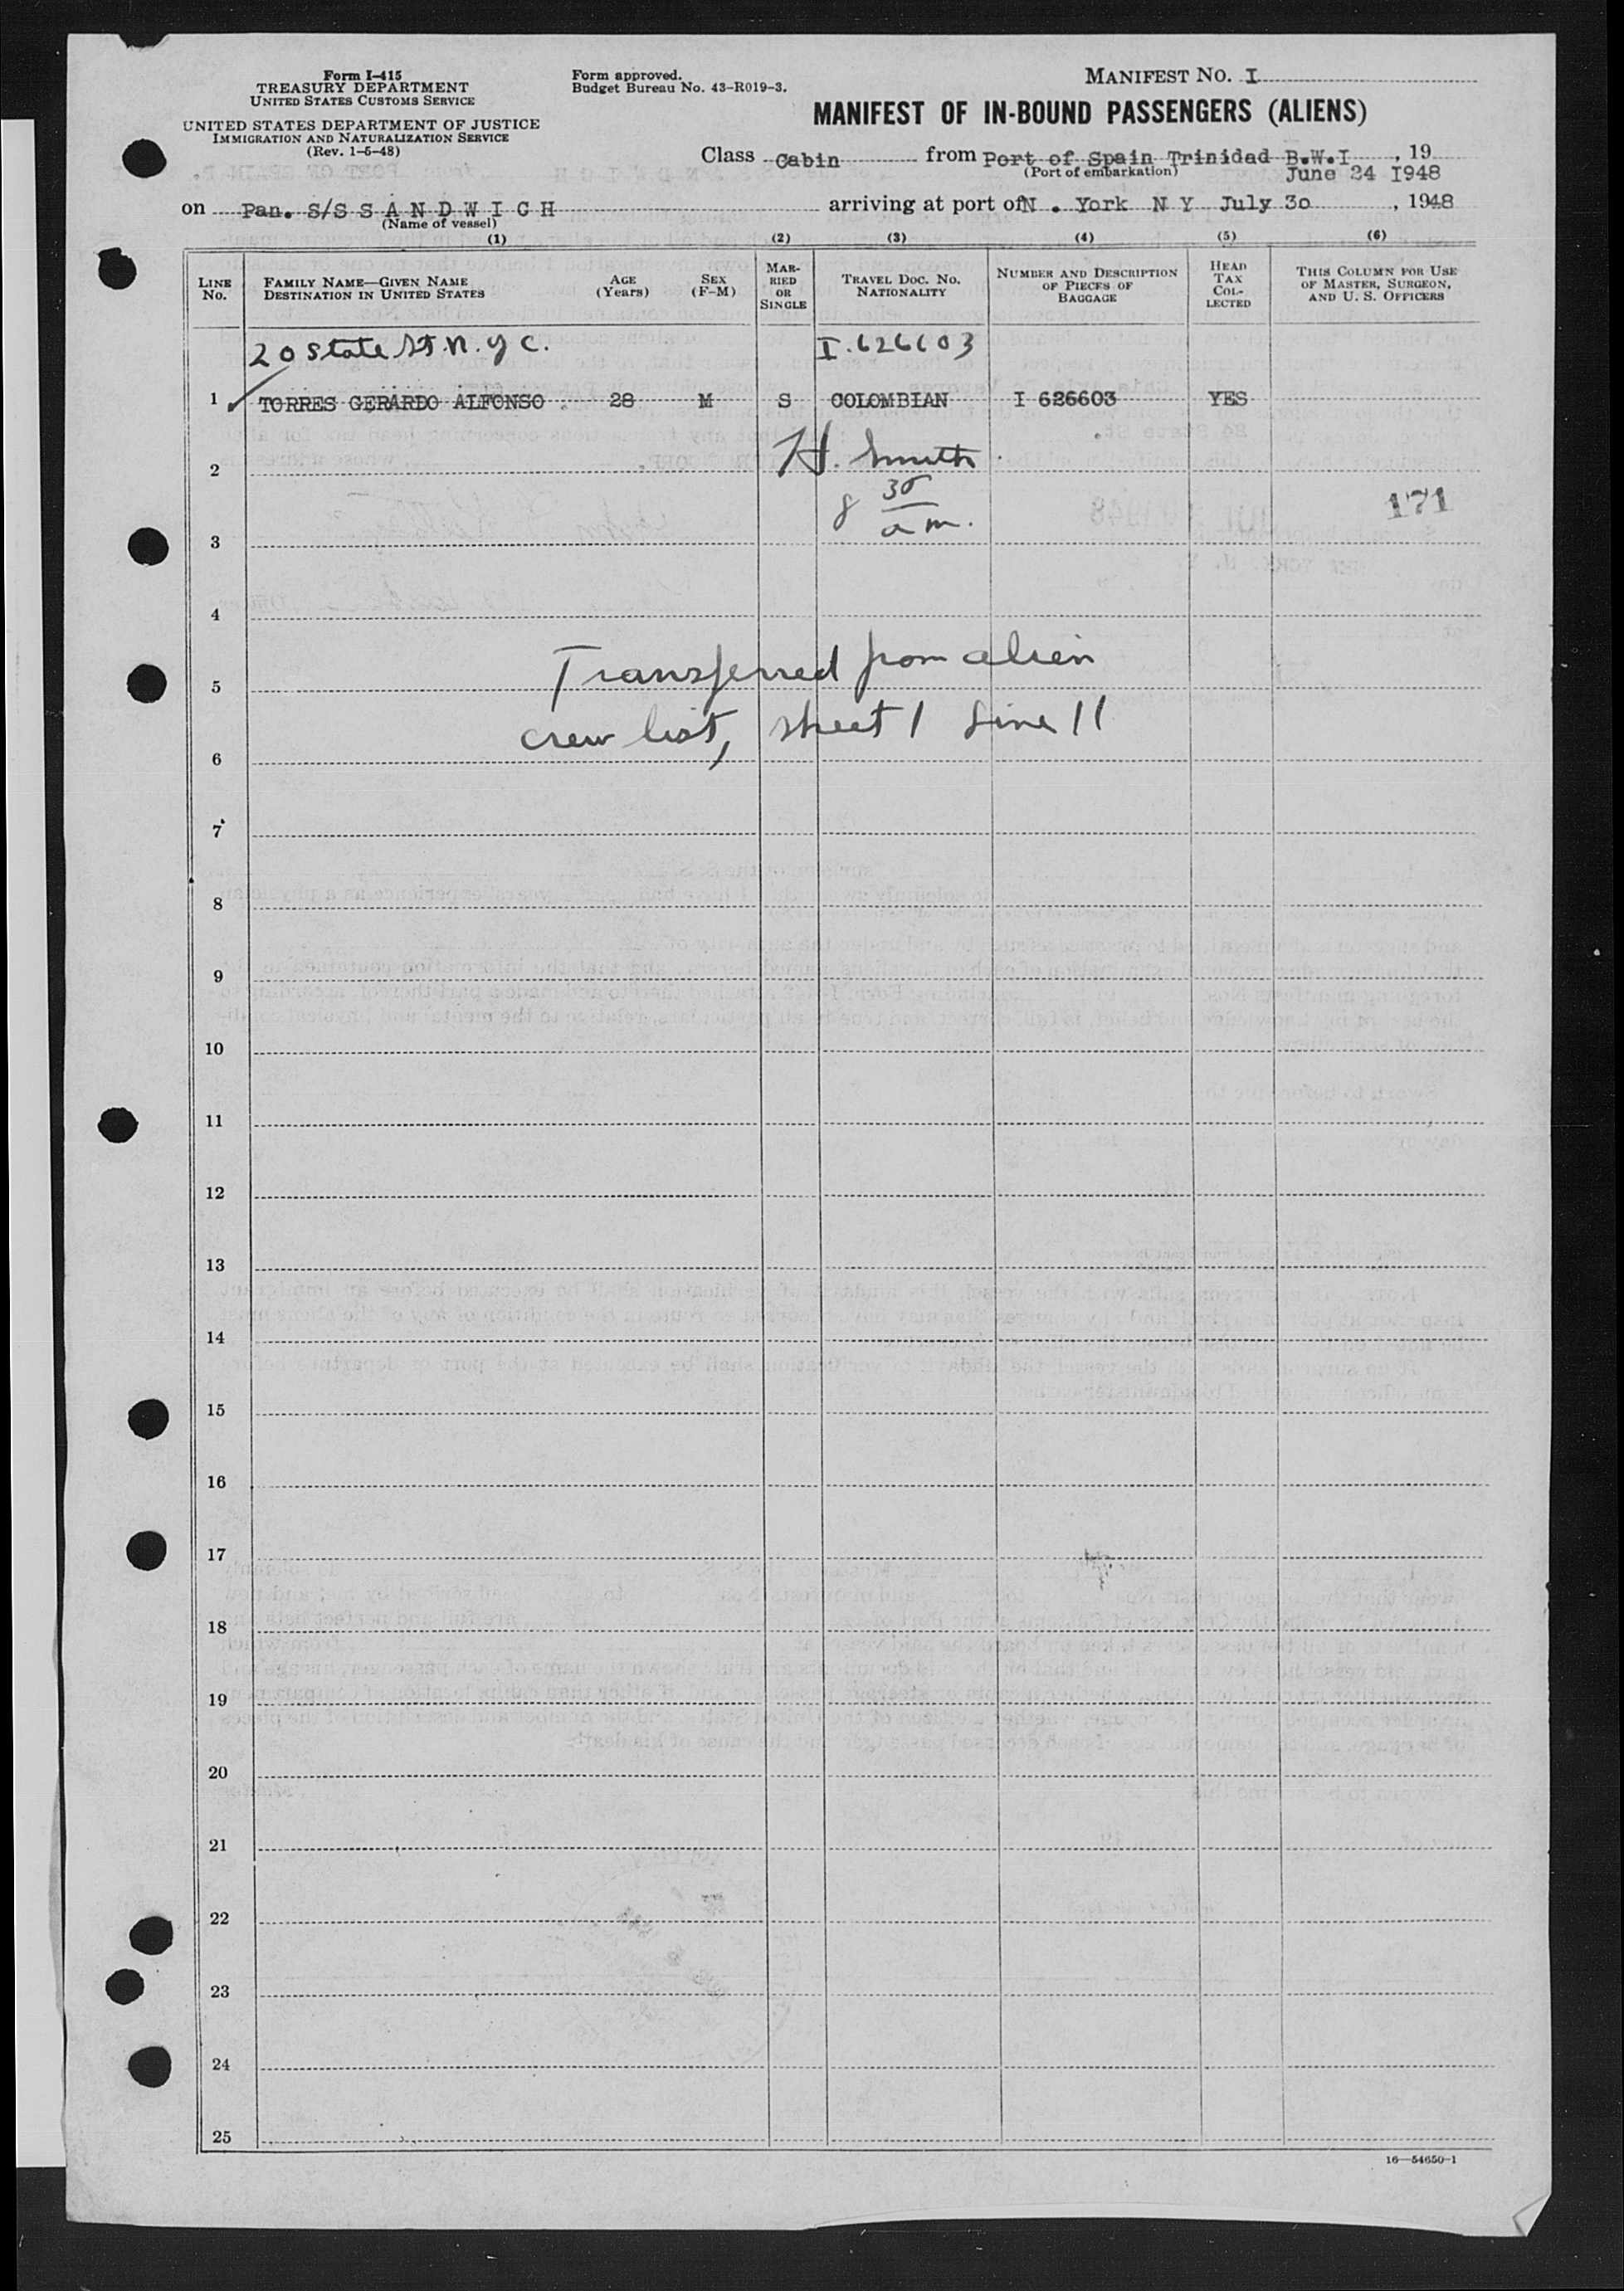 Form I-415
TREASURY DEPARTMENT
UNITED STATES CUSTOMS SERVICE
UNITED STATES DEPARTMENT OF JUSTICE
IMMIGRATION AND NATURALIZATION SERVICE
(Rev. 1-5-48)
Form approved.
Budget Bureau No. 43-R019-3.
MANIFEST NO. I
MANIFEST OF IN-BOUND PASSENGERS (ALIENS)
Class Cabin from Port of Spain Trinidad B.W.I , 19
(Port of embarkation) June 24 1948
on Pan. S/S S A N D W I C H arriving at port of N . York N Y July 30 , 1948
(Name of vessel)
(1) (2) (3) (4) (5) (6)
LINE NO.
FAMILY NAME—GIVEN NAME
DESTINATION IN UNITED STATES
AGE (Years)
SEX (F-M)
MARRIED OR SINGLE
TRAVEL DOC. NO. NATIONALITY
NUMBER AND DESCRIPTION OF PIECES OF BAGGAGE
HEAD TAX COLLECTED
THIS COLUMN FOR USE OF MASTER, SURGEON, AND U. S. OFFICERS
20 State St. N.Y C. I.626603
1 TORRES GERARDO ALFONSO 28 M S COLOMBIAN I 626603 YES
H. Smith
2
8 30 am.
171
3
4
Transferred from alien
5
crew list, sheet 1 Line 11
6
7
8
9
10
11
12
13
14
15
16
17
18
19
20
21
22
23
24
25
16—54650-1